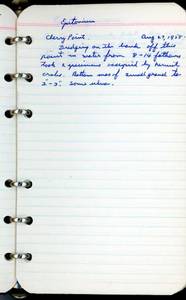 Epitonium
Cherry Point. Aug 27, 1958.
Dredging on the bank off this
point in water from 8-14 fathoms
took 2 specimens occupied by hermit
crabs. Bottom was of small gravel to
2"-3". Some ulva.